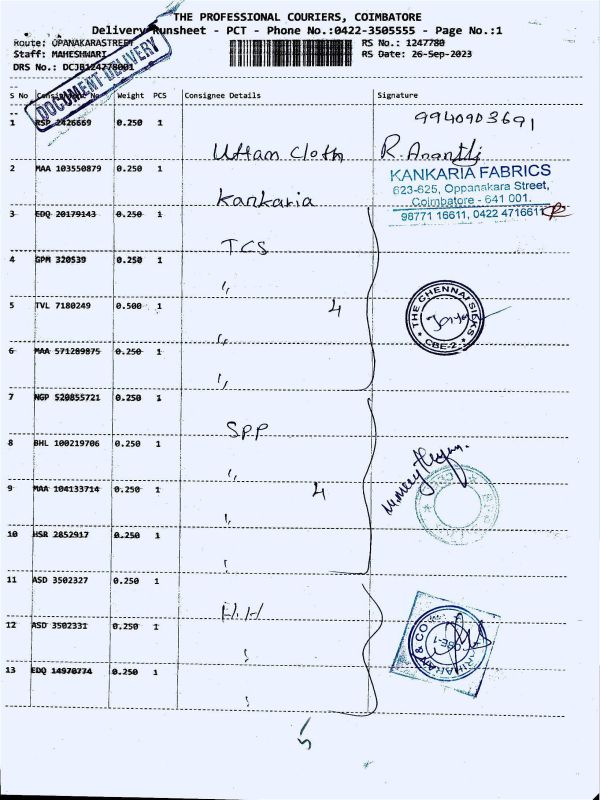 THE PROFESSIONAL COURIERS, COIMBATORE
Delivery Runsheet - PCT - Phone No.:0422-3505555 - Page No.:1
Route: OPANAKARASTREET RS No.: 1247780
Staff: MAHESHWARI RS Date: 26-Sep-2023
DRS No.: DCJB124778001
DOCUMENT DELIVERY
S No Consignment No Weight PCS Consignee Details Signature
1 RSP 2426669 0.250 1 Uttam Cloth 9940903691
R. Ananthi
2 MAA 103550879 0.250 1 Kankaria
KANKARIA FABRICS
623-625, Oppanakara Street,
Coimbatore - 641 001.
98771 16611, 0422 4716611
3 EDQ 20179143 0.250 1 TCS
4 GPM 320539 0.250 1 "
5 TVL 7180249 0.500 1 " 4
THE CHENNAI SILKS
CBE-2
6 MAA 571289875 0.250 1 "
7 NGP 520855721 0.250 1 SPP
8 BHL 100219706 0.250 1 "
9 MAA 104133714 0.250 1 " 4
10 HSR 2852917 0.250 1 "
11 ASD 3502327 0.250 1 H.H
12 ASD 3502331 0.250 1 "
& CO
CBE-1
13 EDQ 14970774 0.250 1 "